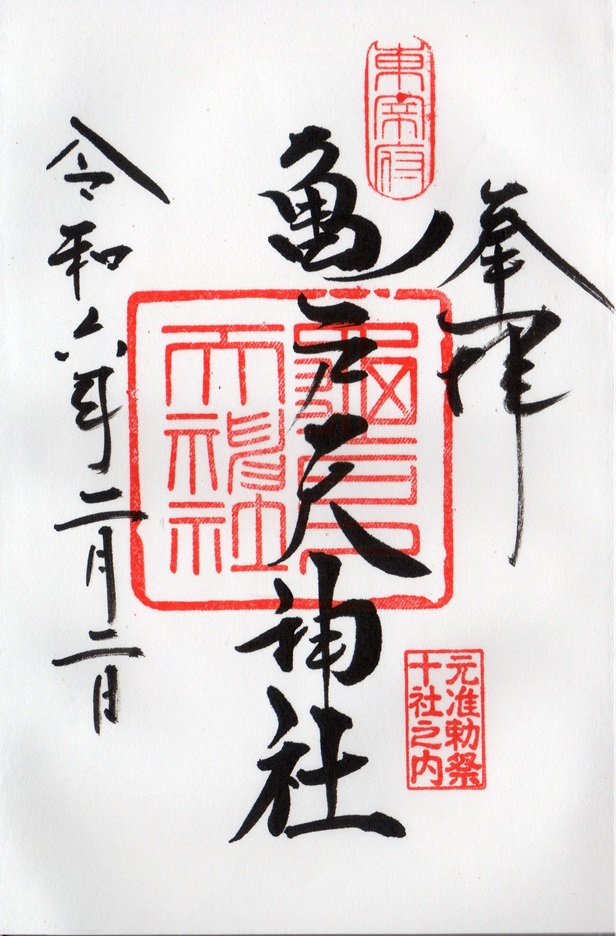 東宰府
奉拝
亀戸天神社
龜戸
天神社
元准勅祭
十社之内
令和六年二月二日